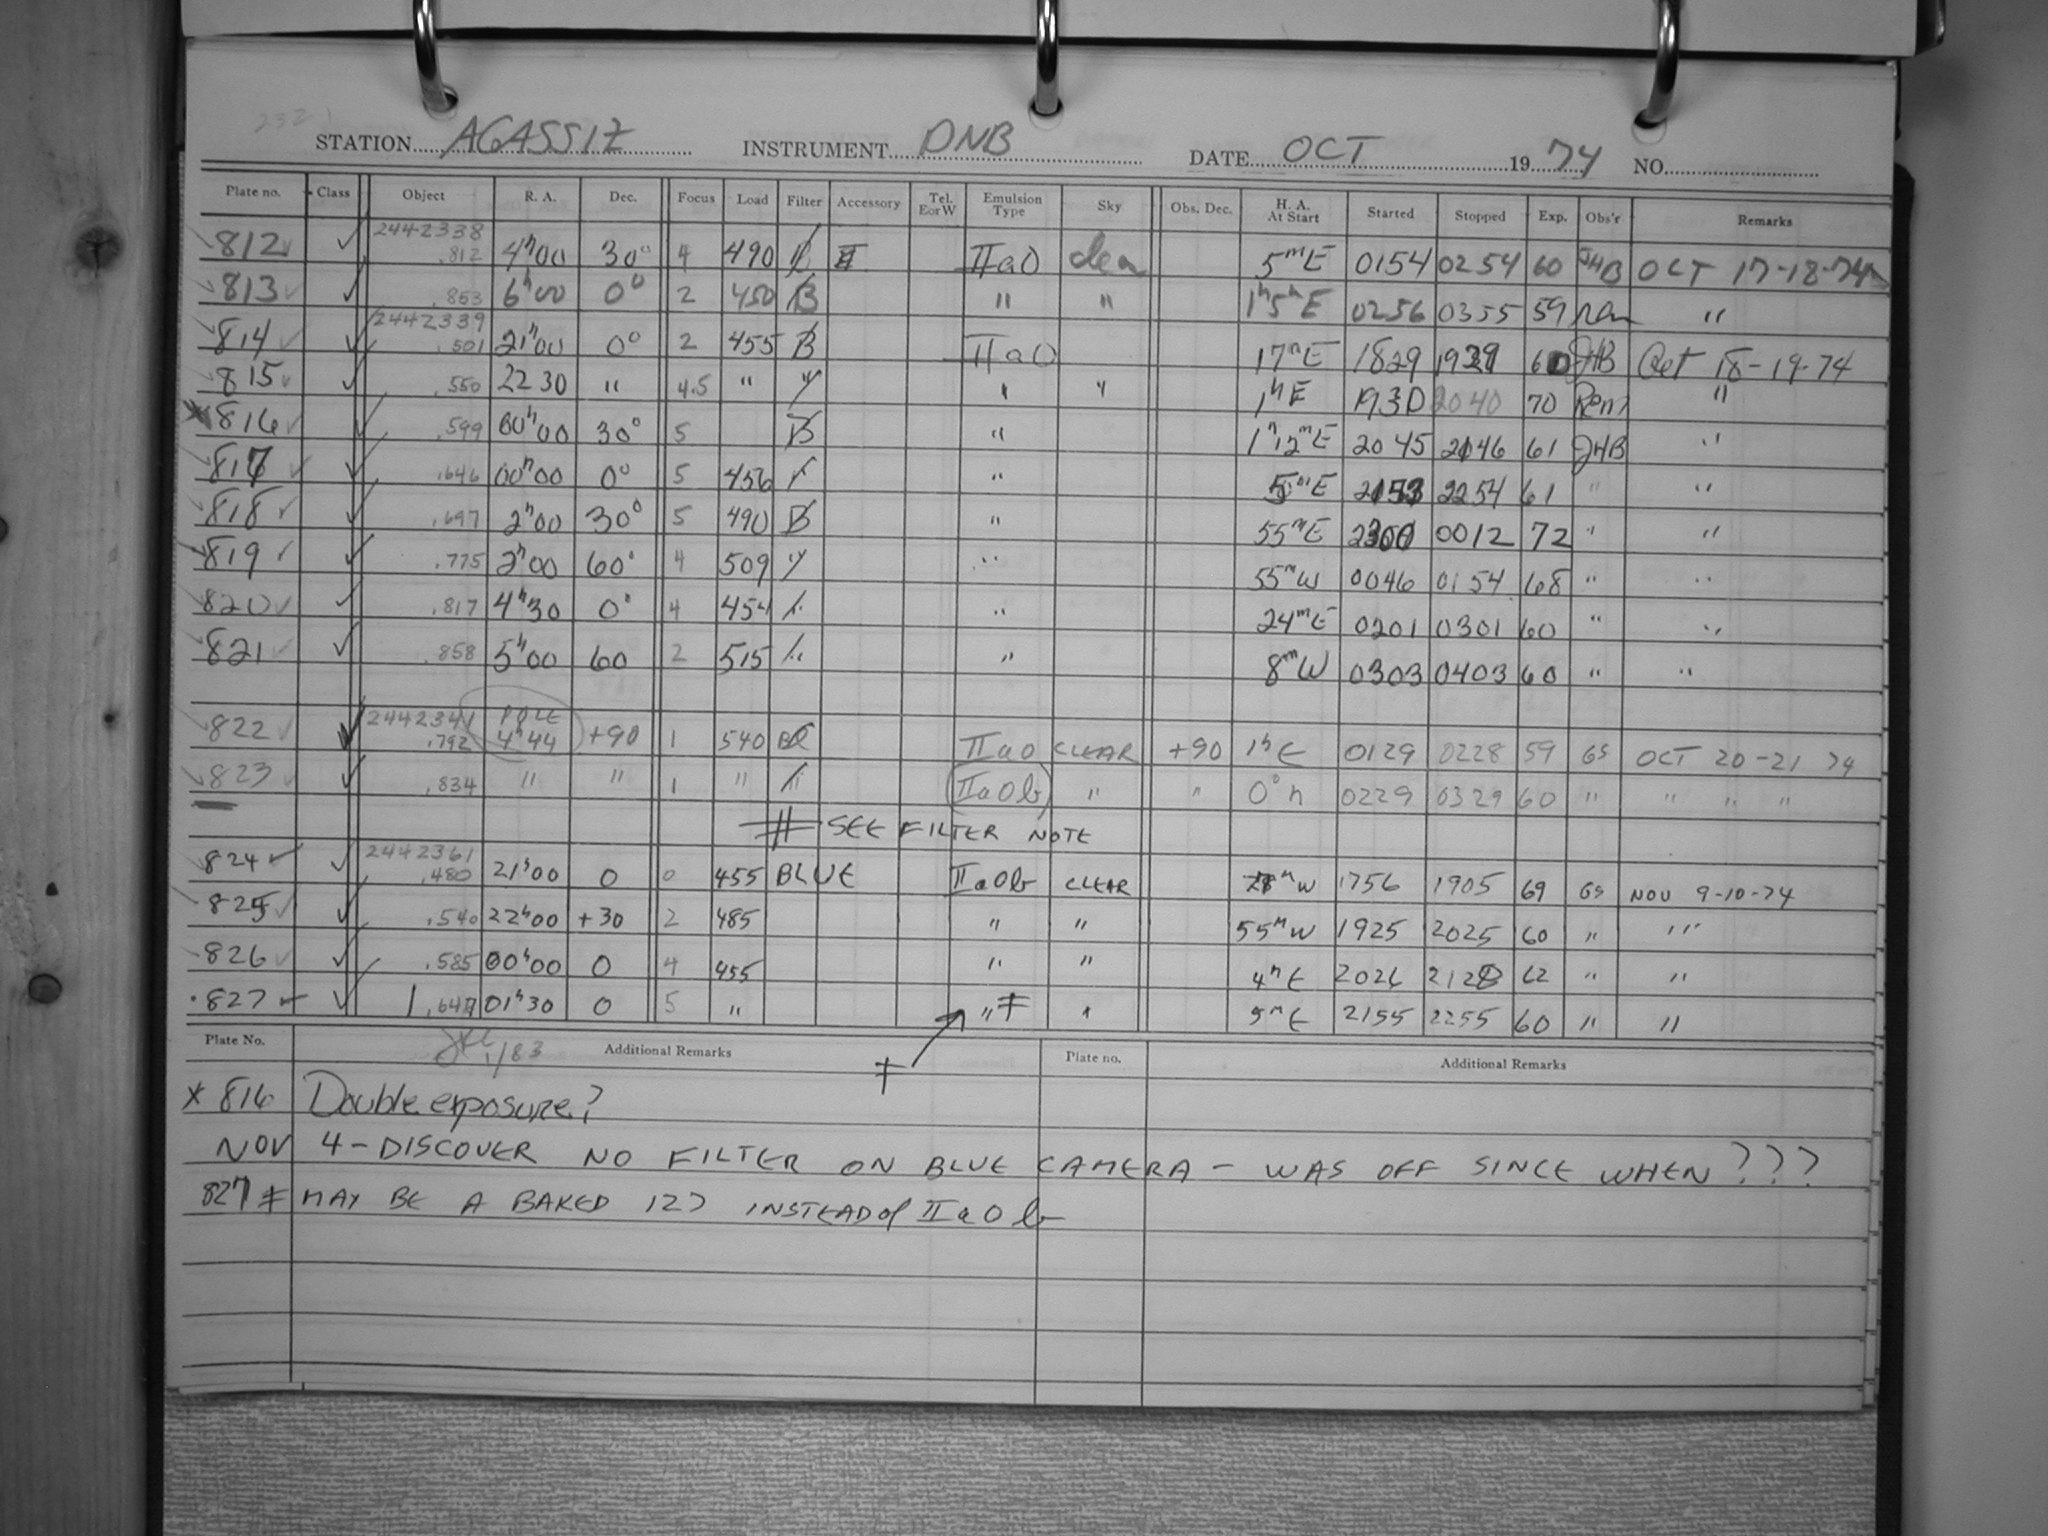 STATION AGASSIZ INSTRUMENT DNB DATE OCT 1974 NO.
Plate no. Class Object R. A. Dec. Focus Load Filter Accessory Tel. E or W Emulsion Type Sky Obs. Dec. H. A. At Start Started Stopped Exp. Obs'r Remarks
2442338
812 ✓ .812 4h00 30° 4 490 IIaO clear 5mE 0154 0254 60 JHB OCT 17-18-74
813 ✓ .853 6h00 0° 2 450 B " " 1h5mE 0256 0355 59 " 
2442339
814 ✓ .501 21h00 0° 2 455 B IIaO 17mE 1829 1929 60 JHB Oct 18-19-74
815 ✓ .550 22 30 " 4.5 " " " " 1hE 1930 2040 70 Rem "
* 816 ✓ .599 00h00 30° 5 B " 1h12mE 2045 2146 61 JHB "
817 ✓ .646 00h00 0° 5 456 " " 5mE 2153 2254 61 " "
818 ✓ .697 2h00 30° 5 490 B " 55mE 2300 0012 72 " "
819 ✓ .775 2h00 60° 4 509 " " 55mW 0046 0154 68 " "
820 ✓ .817 4h30 0° 4 454 " " 24mE 0201 0301 60 " "
821 ✓ .858 5h00 60 2 515 " " 8mW 0303 0403 60 " "
2442341 POLE
822 ✓ .792 4h44 +90 1 540 IIaO CLEAR +90 1hE 0129 0228 59 GS OCT 20-21 74
823 ✓ .834 " " 1 " " IIaOb " " 0°h 0229 0329 60 " " " "
# SEE FILTER NOTE
2442361
824 ✓ .480 21h00 0 0 455 BLUE IIaOb CLEAR 1756 1905 69 GS NOV 9-10-74
825 ✓ .540 22h00 +30 2 485 " " 55mW 1925 2025 60 " "
826 ✓ .585 00h00 0 4 455 " " 4mE 2026 2128 62 " "
827 ✓ .647 01h30 0 5 " " ‡ " 5mE 2155 2255 60 " "
Plate No. Additional Remarks Plate no. Additional Remarks
1/83
‡
* 816 Double exposure?
NOV 4 - DISCOVER NO FILTER ON BLUE CAMERA - WAS OFF SINCE WHEN ???
827 ‡ MAY BE A BAKED 127 INSTEAD of IIaOb